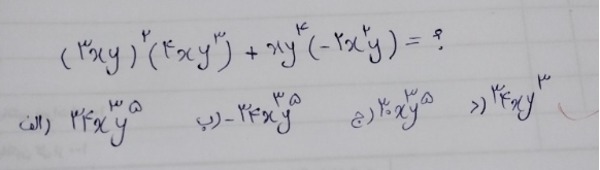 (۳xy)^۲(۴xy^۳) + xy^۴(-۲x^۲y) = ?
الف) ۳۴x^۳y^۵ ب) -۳۴x^۳y^۵ ج) ۳۰x^۳y^۵ د) ۳۴xy^۳